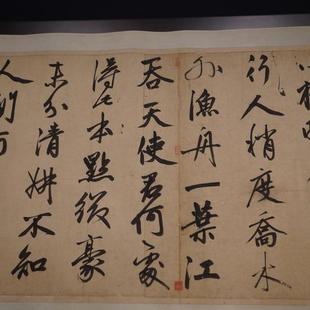 行人稍度喬木
外漁舟一葉江
吞天使君何處
得此本點綴豪
末分清妍不知
人間何